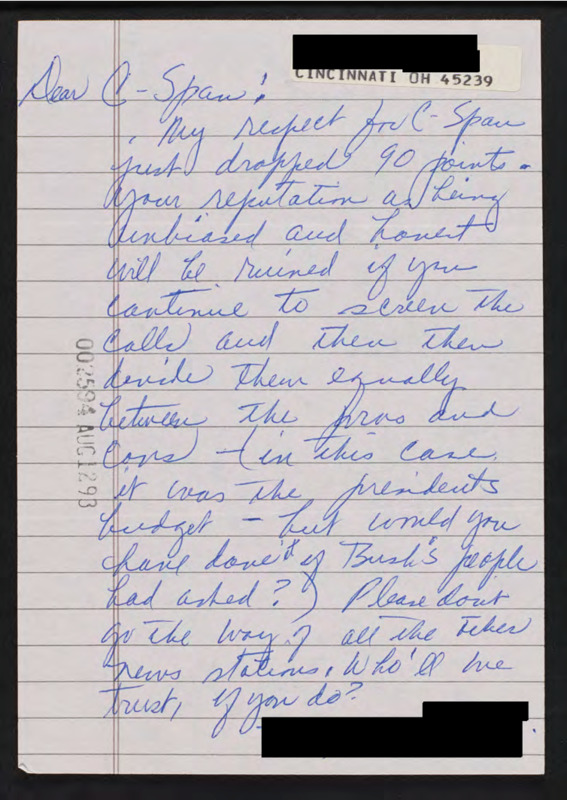 CINCINNATI OH 45239
Dear C-Span:
My respect for C-Span
just dropped 90 points.
Your reputation as being
unbiased and honest
will be ruined if you
continue to screen the
calls and then then
devide them equally
between the pros and
cons - (in this case
it was the presidents
budget - but would you
have done it if Bush's people
had asked?) Please don't
go the way of all the other
news stations. Who'll we
trust, if you do?
002594 AUG 12 93